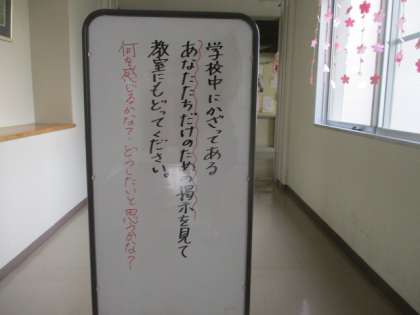 学校中にかざってある
あなたたちだけのための掲示を見て
教室にもどってください。
何を感じるかな？どうしたいと思うかな？